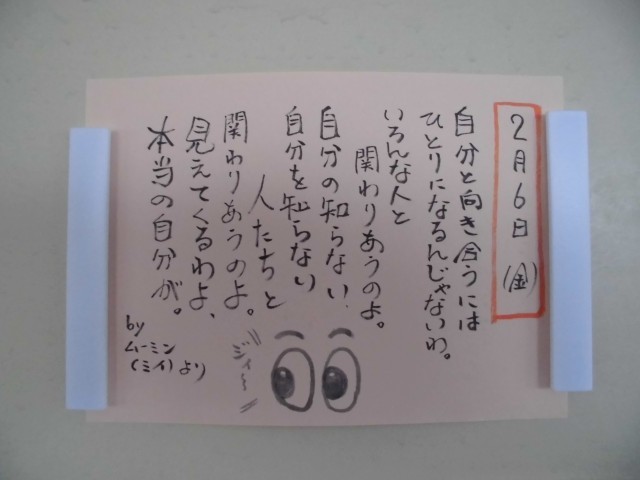 2月6日(金)
自分と向き合うには
ひとりになるんじゃないわ。
いろんな人と
関わりあうのよ。
自分の知らない、
自分を知らない
人たちと
関わりあうのよ。
見えてくるわよ、
本当の自分が。
by
ムーミン
(ミイ)より
ジィ〜